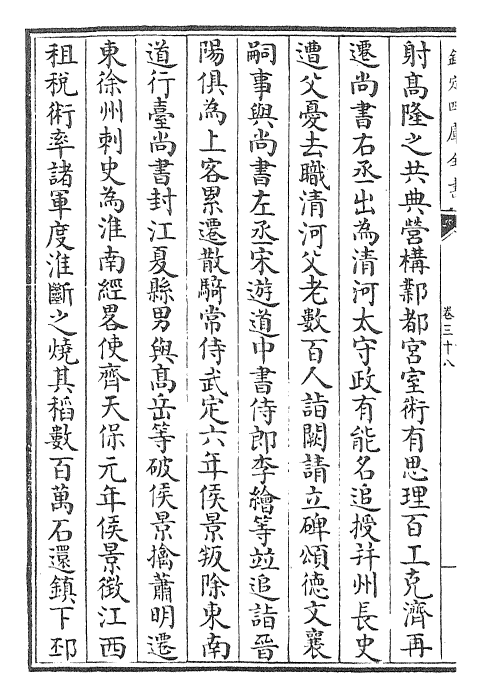 欽定四庫全書
卷三十八
射髙隆之共典營構鄴都宫室術有思理百工克濟再
遷尚書右丞出為清河太守政有能名追授并州長史
遭父憂去職清河父老數百人詣闕請立碑頌徳文襄
嗣事與尚書左丞宋遊道中書侍郎李繪等竝追詣晉
陽俱為上客累遷散騎常侍武定六年侯景叛除東南
道行臺尚書封江夏縣男與髙岳等破侯景擒蕭明遷
東徐州刺史為淮南經畧使齊天保元年侯景徴江西
租税術率諸軍度淮斷之燒其稻數百萬石還鎮下邳